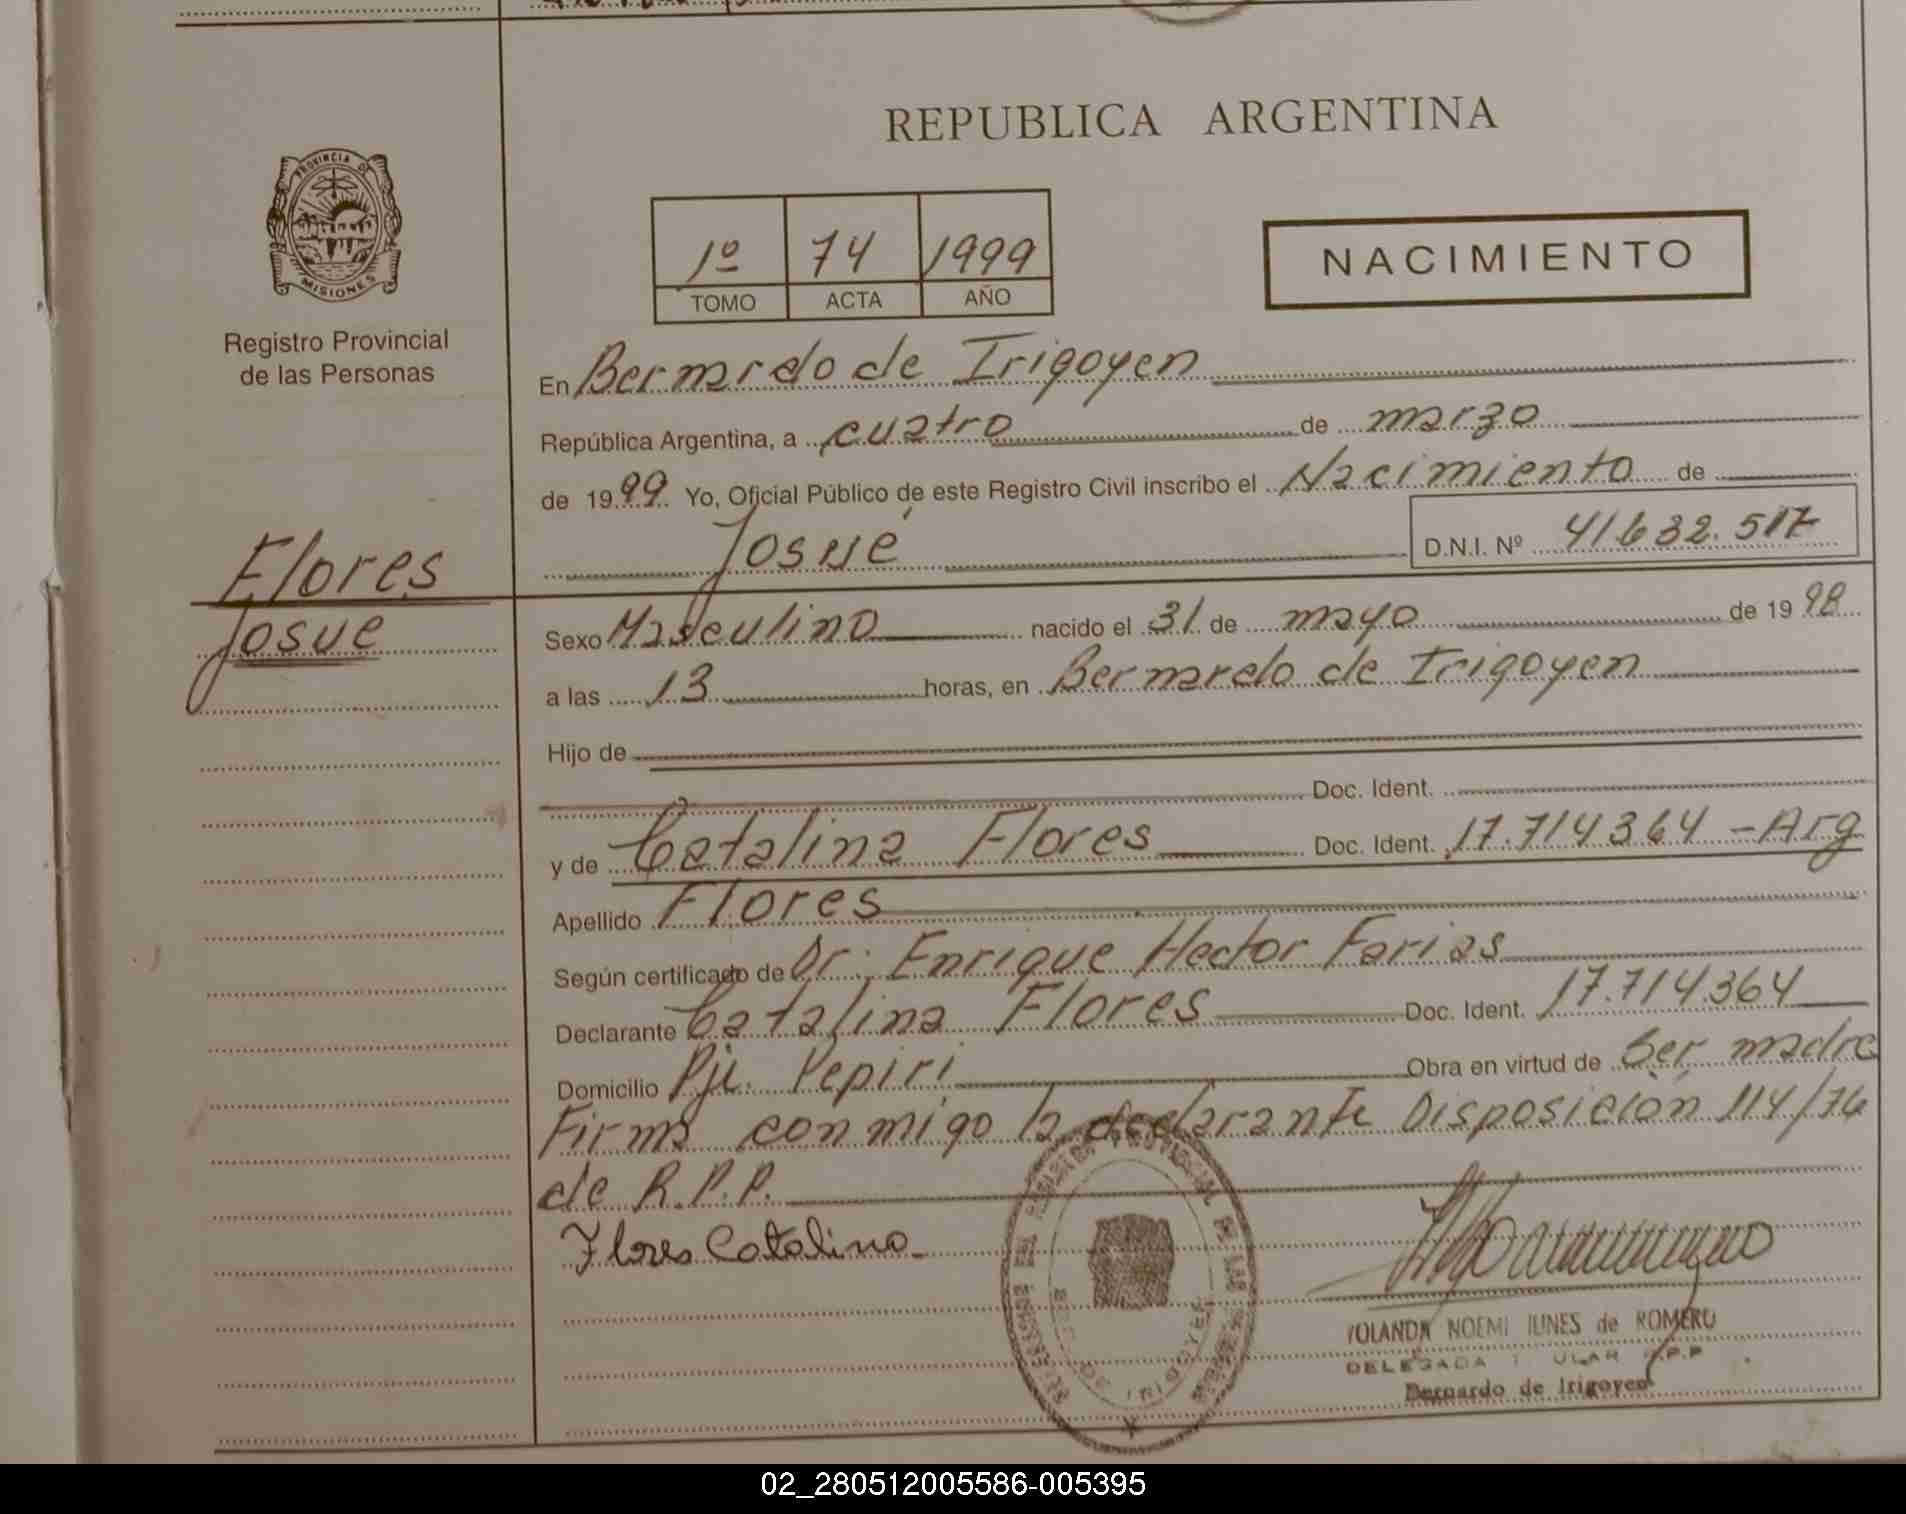 REPUBLICA ARGENTINA
PROVINCIA DE MISIONES
Registro Provincial
de las Personas
1º 74 1999
TOMO ACTA AÑO
NACIMIENTO
En Bernardo de Irigoyen
República Argentina, a cuatro de marzo
de 1999 Yo, Oficial Público de este Registro Civil inscribo el Nacimiento de
Josué D.N.I. Nº 41632.517
Flores
Josue
Sexo Masculino nacido el 31 de mayo de 1998
a las 13 horas, en Bernardo de Irigoyen
Hijo de
Doc. Ident.
y de Catalina Flores Doc. Ident. 17.714364 - Arg
Apellido Flores
Según certificado de Dr. Enrique Hector Farias
Declarante Catalina Flores Doc. Ident. 17.714.364
Domicilio Pje. Pepiri Obra en virtud de Ser madre
Firma conmigo la declarante Disposición 114/76
de R.P.P.
Flores Catalina
YOLANDA NOEMI de ROMERO
DELEGADA R.P.P
Bernardo de Irigoyen
02_280512005586-005395